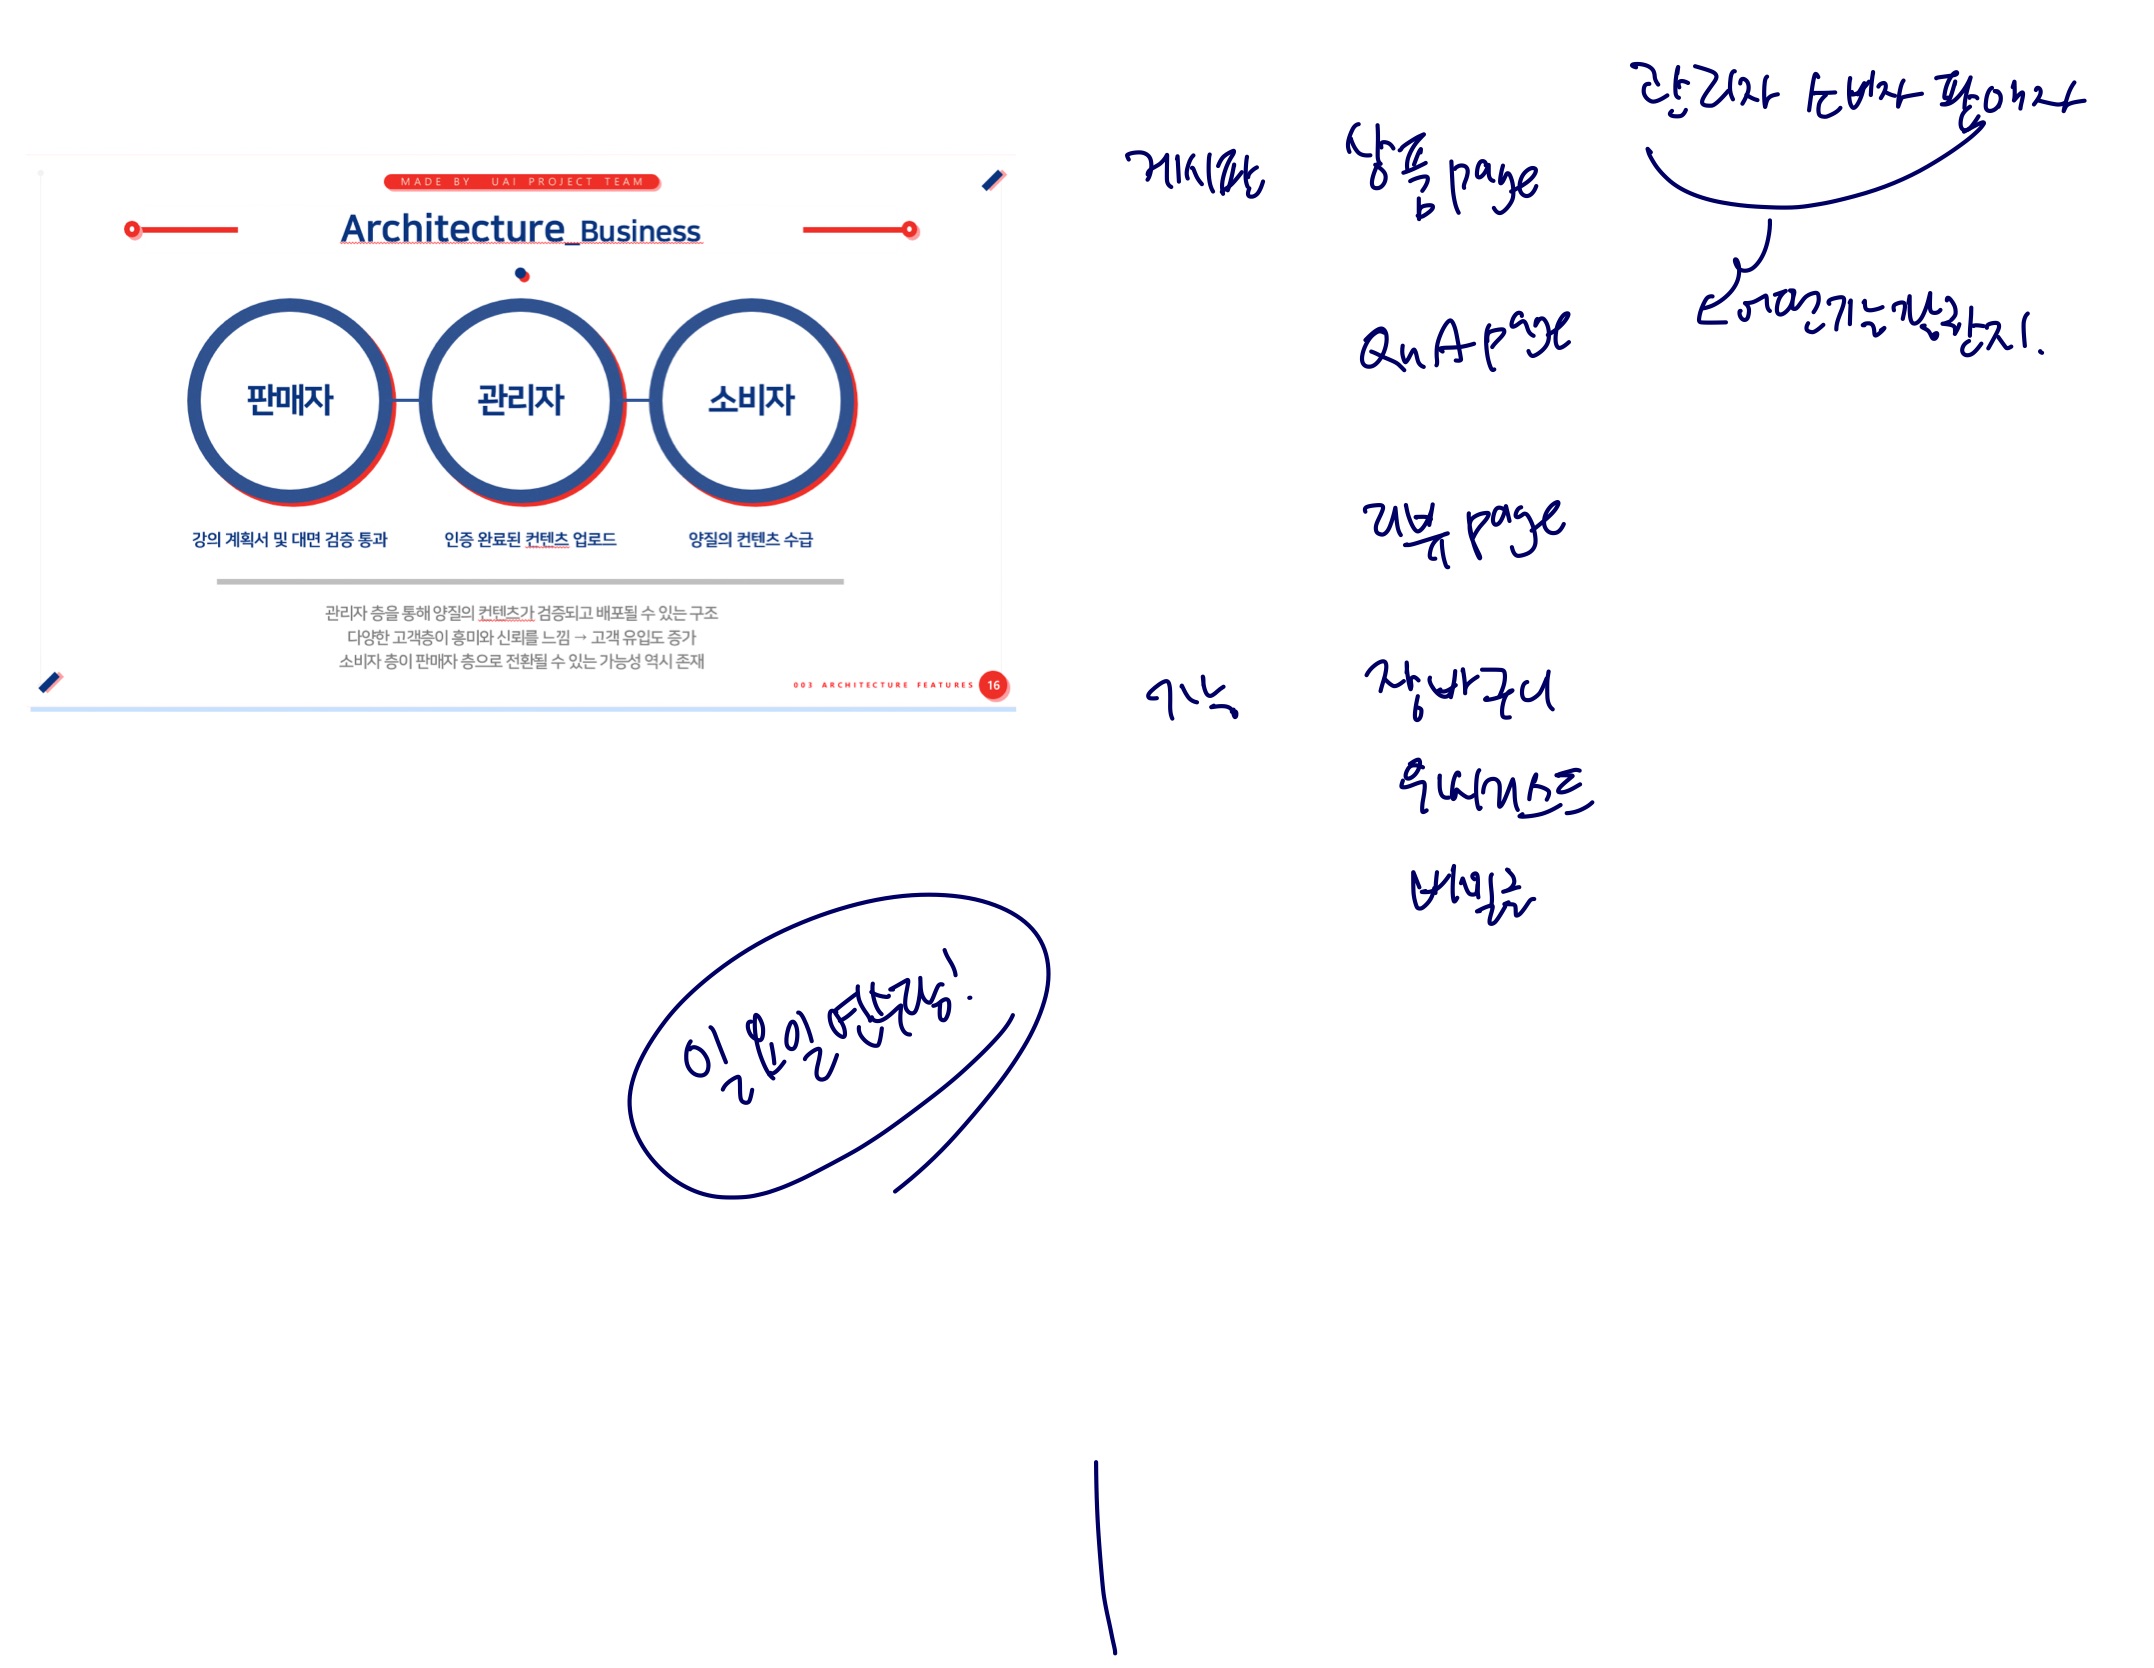 MADE BY UAI PROJECT TEAM
Architecture_Business
판매자
관리자
소비자
강의 계획서 및 대면 검증 통과
인증 완료된 컨텐츠 업로드
양질의 컨텐츠 수급
관리자 층을 통해 양질의 컨텐츠가 검증되고 배포될 수 있는 구조
다양한 고객층이 흥미와 신뢰를 느낌 → 고객 유입도 증가
소비자 층이 판매자 층으로 전환될 수 있는 가능성 역시 존재
003 ARCHITECTURE FEATURES 16
관리자 소비자 판매자
게시판 상품page
QnA page
리뷰 page
기능 장바구니
위시리스트
일요일